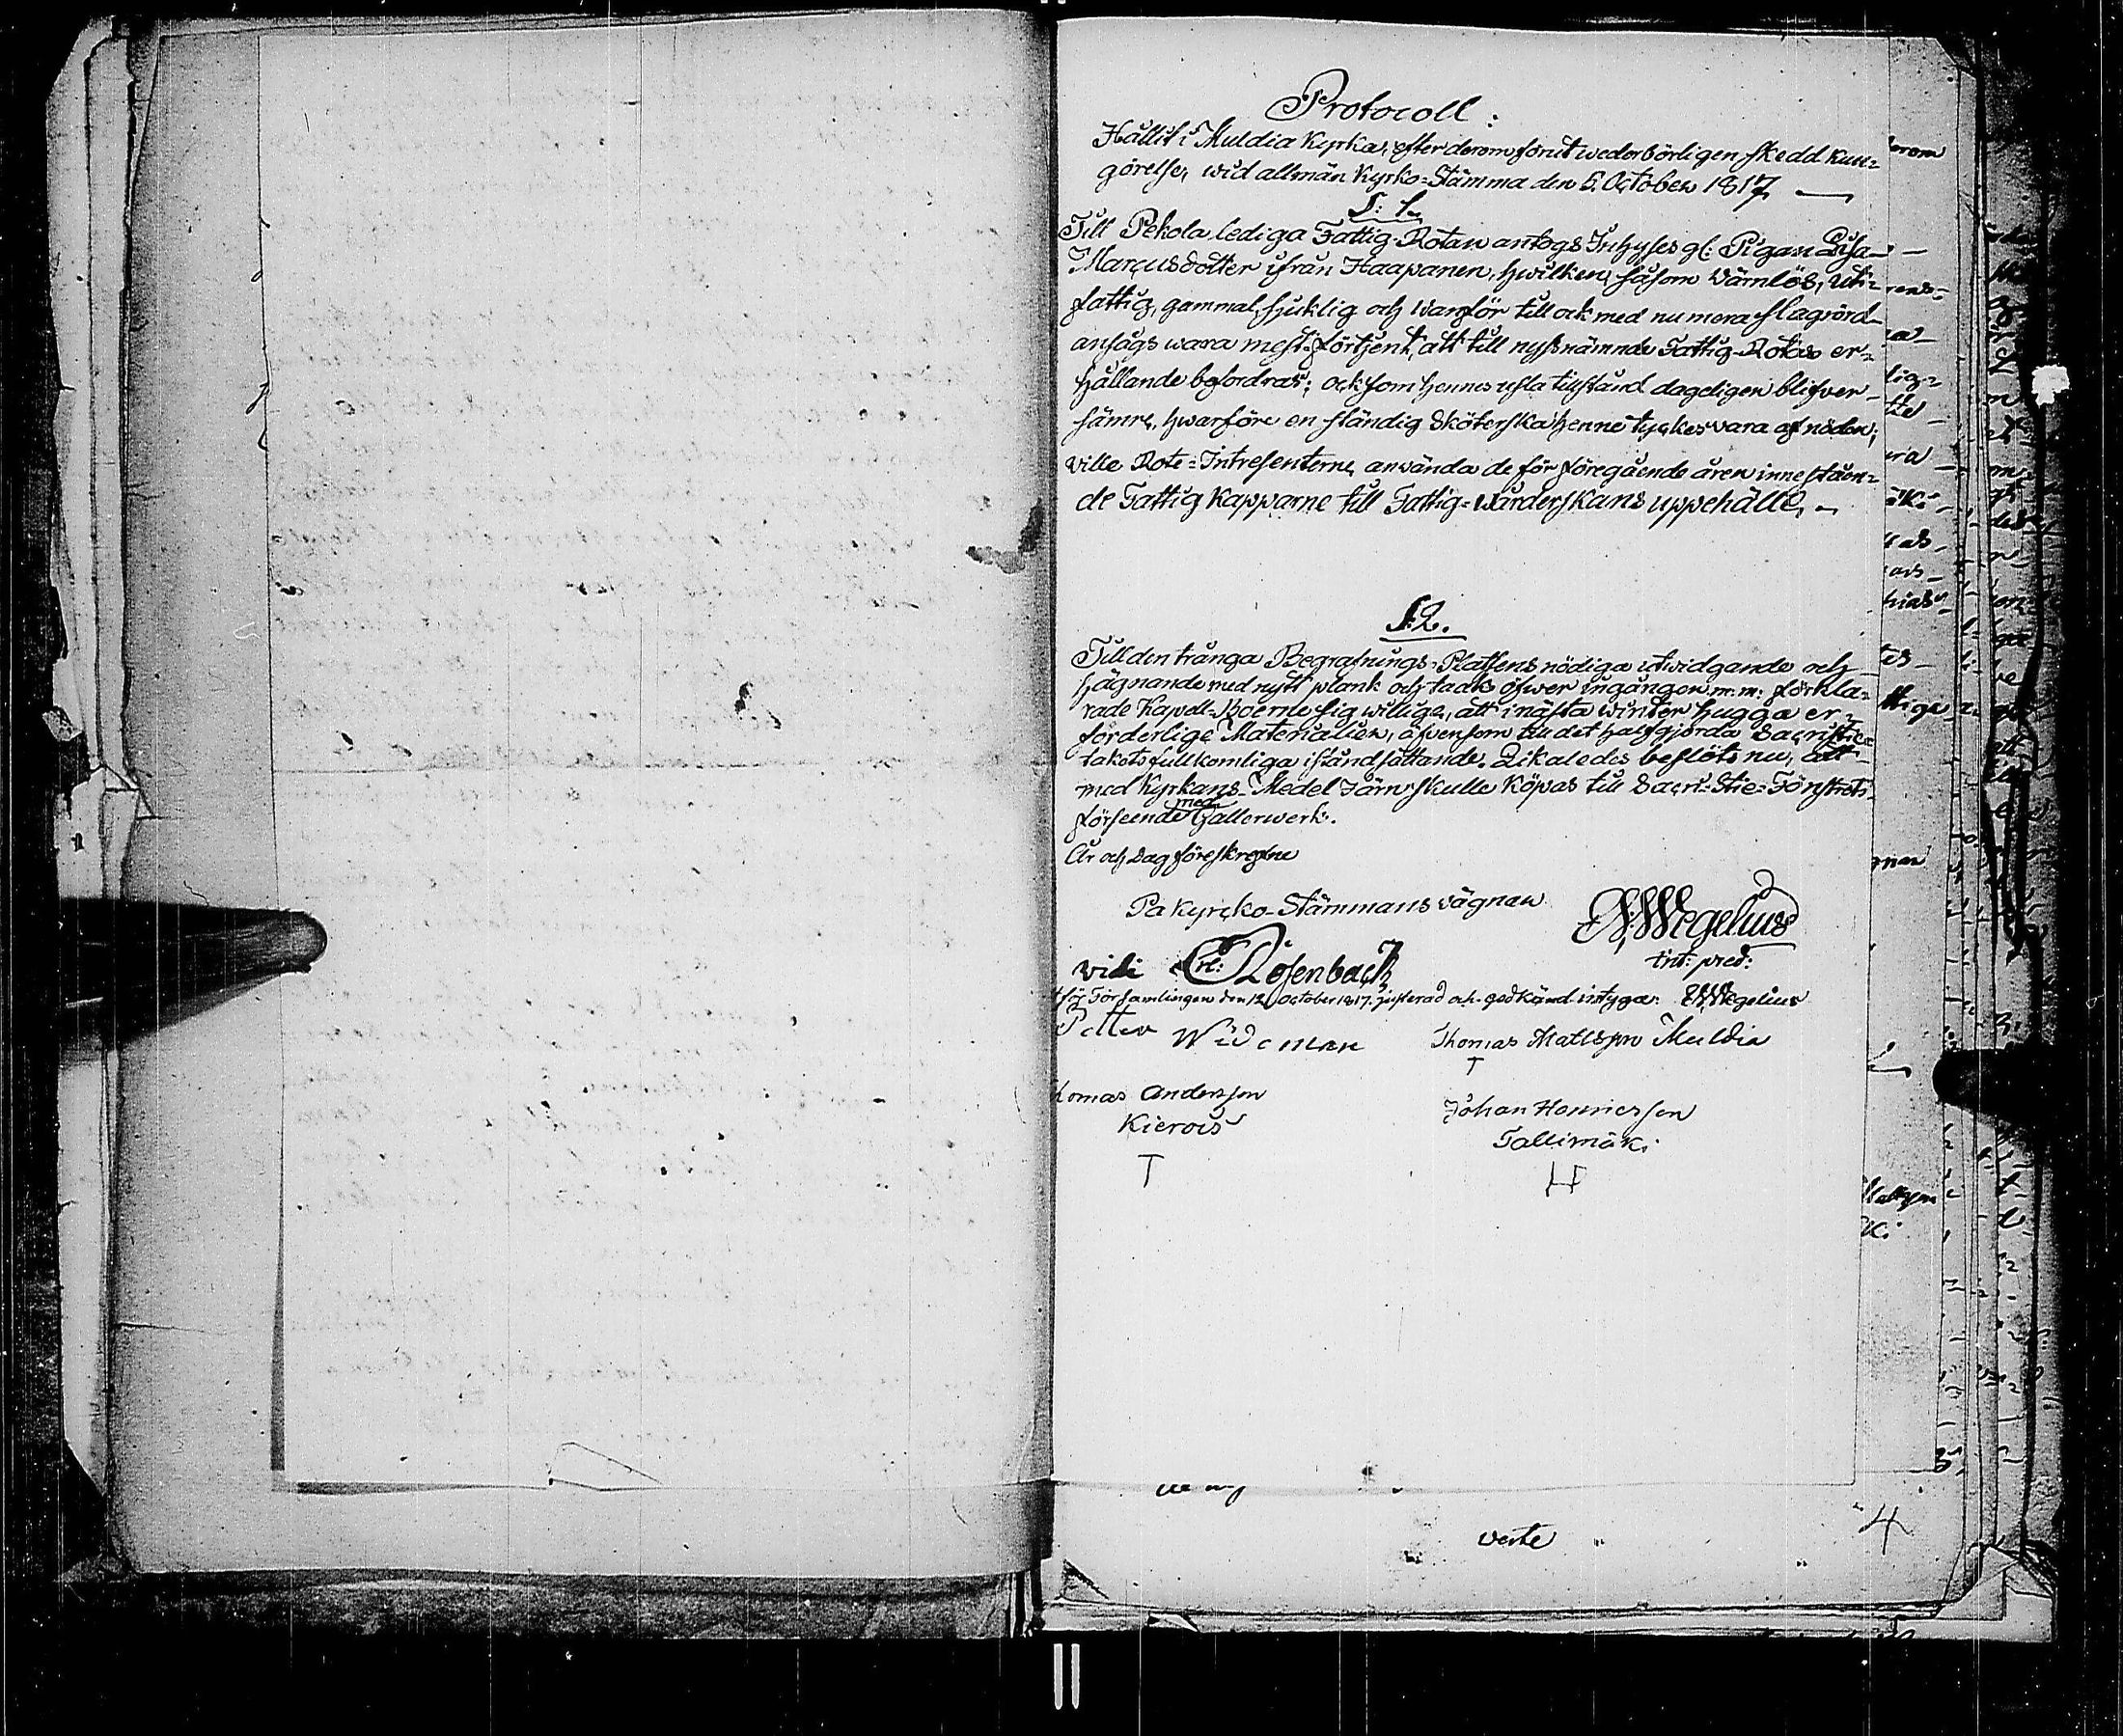 Protocoll:
Hållit i Muldia Kyrka, efter derom förut wederbörligen skedd kun=
görelse, wid allmän Kyrko=Stämma den 5 October 1817
§: 1.
Till Pekola lediga Fattig-Rotan antogs Inhyses gl: Pigan Lisa
Marcusdotter ifrån Haapanen, hwilken, såsom Värnlös, ut=
fattig, gammal, sjuklig och wanför till ock med nu mera slagrörd
ansågs wara mest förtjent, att till nyssnämnde Fattig-Rotas er=
hållande befordras; och som hennes usla tillstånd dageligen blifver
sämre, hwarföre en ständig Sköterska henne tyckes vara af nöden;
ville Rote=Intressenterne använda de för föregående åren innestäen=
de Fattig Kapparne till Fattig=Wårderskans uppehälle.
§. 2.
Till den trånga Begrafnings=Platsens nödiga utwidgande och
hägnande med nytt plank och taak öfwer ingången m: m: förkla=
rade Kapell=Boerne sig willige, att i nästa winter hugga er=
forderlige Materialier, äfvensom till det halfgjorda Sacristie
takets fullkomliga iståndsättande. Likaledes beslöts nu, att
med Kyrkans Medel Järn skulle Köpas till Sacri=Stie=Fönstrets
förseende med Gallerwerk.
År och Dag föreskrefne
På Kyrcko-Stämmans vägnar
Wegelius
vidi Rosenbach
för Församlingen den 12 October 1817. justerad och godkänd intygar: Wegelius
Petter Wideman
Thomas Mattsson Muldia
T
Thomas Andersson
Kierois
T
Johan Henricsson
Tallimäki
verte
4